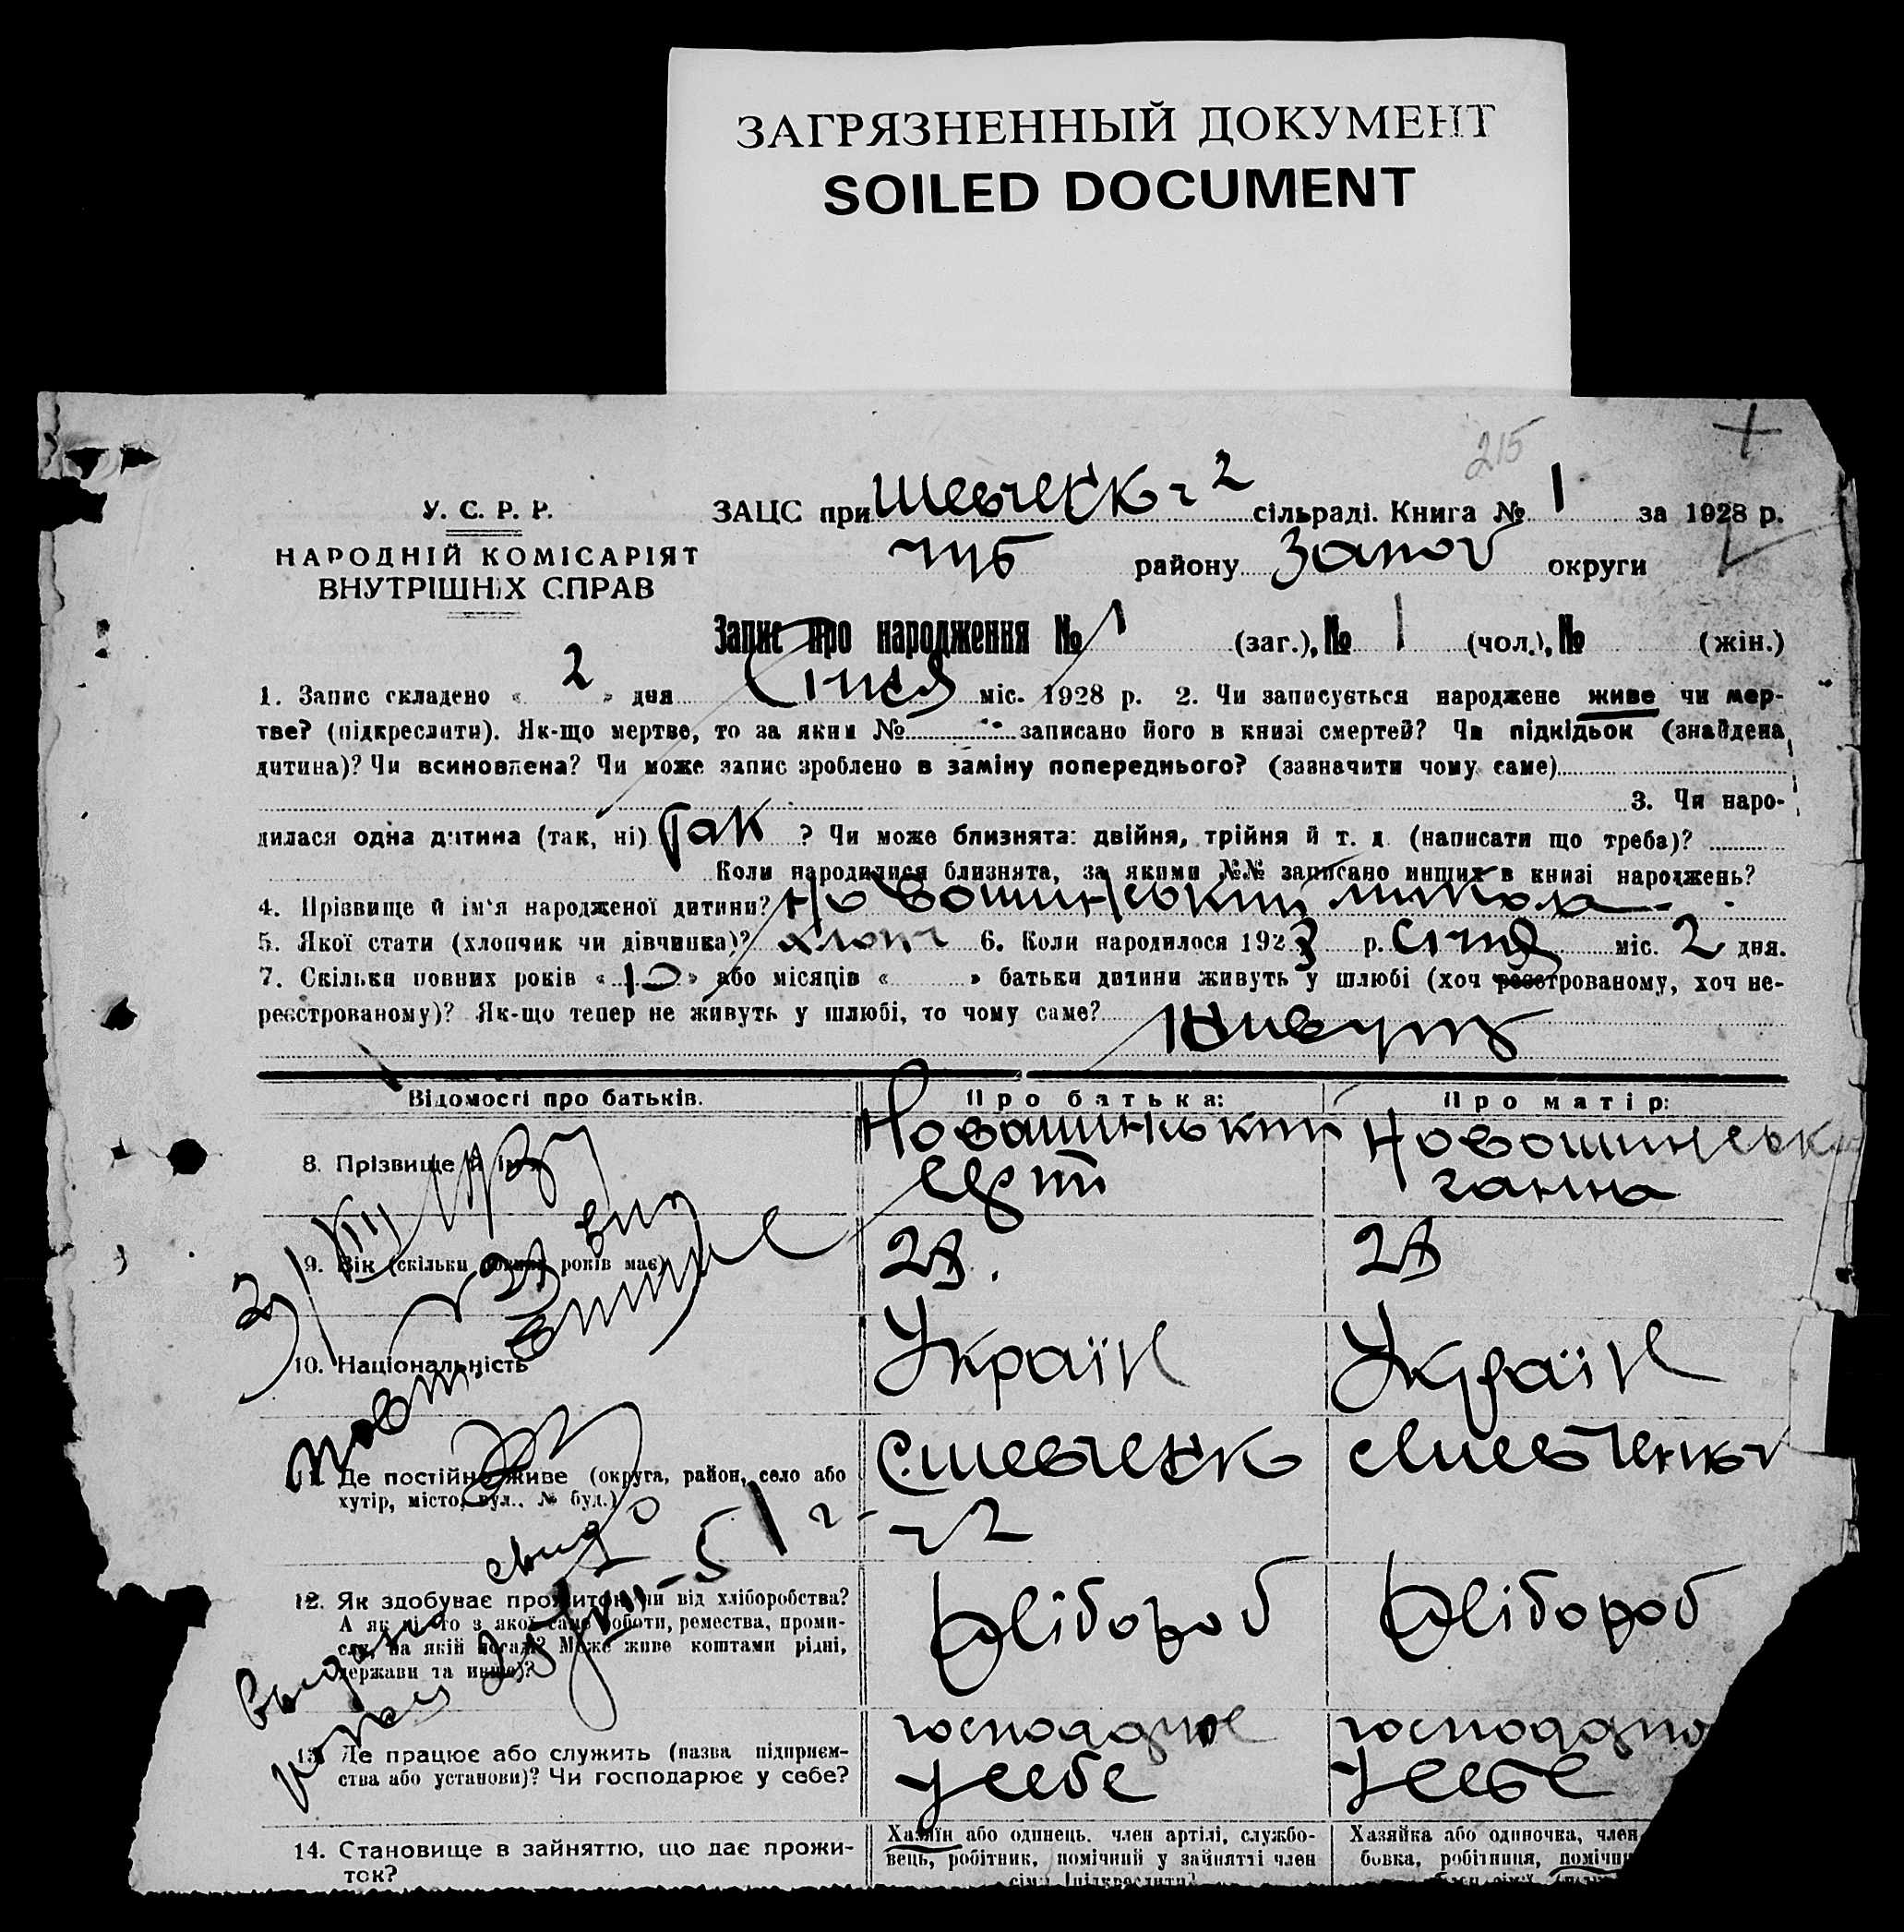 ЗАГРЯЗНЕННЫЙ ДОКУМЕНТ
SOILED DOCUMENT
215
У. С. Р. Р.
НАРОДНІЙ КОМІСАРІЯТ
ВНУТРІШНІХ СПРАВ
ЗАЦС при Шевченк 2 сільраді. Книга № 1 за 1928 р.
району Запоr округи
Запис про народження № 1 (заг.), № 1 (чол.), № (жін.)
1. Запис складено « 2 » дня Січня міс. 1928 р. 2. Чи записується народжене живе чи мер-
тве? (підкреслити). Як-що мертве, то за яким № записано його в книзі смертей? Чи підкідьок (знайдена
дитина)? Чи всиновлена? Чи може запис зроблено в заміну попереднього? (зазначити чому саме)
3. Чи наро-
дилася одна дитина (так, ні) так ? Чи може близнята: двійня, трійня й т. д. (написати що треба)?
Коли народилися близнята, за якими №№ записано инших в книзі народжень?
4. Прізвище й ім'я народженої дитини? Новошинський Микола
5. Якої стати (хлопчик чи дівчинка)? хлопч 6. Коли народилося 1928 р. Січня міс. 2 дня.
7. Скільки повних років « 10 » або місяців « » батьки дитини живуть у шлюбі (хоч реєстрованому, хоч не-
реєстрованому)? Як-що тепер не живуть у шлюбі, то чому саме? Живуть
Відомості про батьків. Про батька: Про матір:
8. Прізвище й ім'я Новошинський Новошинська
Ганна
9. Вік (скільки повних років має) 28. 28
10. Національність Україн Україн
11. Де постійно живе (округа, район, село або
хутір, місто, вул., № буд.) с. Шевченк с Шевченк
2
12. Як здобуває прожиток, чи від хліборобства?
А як ні, то з якої саме роботи, ремества, проми-
слу, на якій посаді? Може живе коштами рідні,
держави та инше)? Хлібороб Хлібороб
13. Де працює або служить (назва підприєм-
ства або установи)? Чи господарює у себе?
у себе у себе
14. Становище в зайняттю, що дає прожи-
ток?
Хазяїн або одинець, член артілі, службо-
вець, робітник, помічний у зайнятті член
сім'ї (підкреслити)
Хазяйка або одиночка, член
бовка, робітниця,